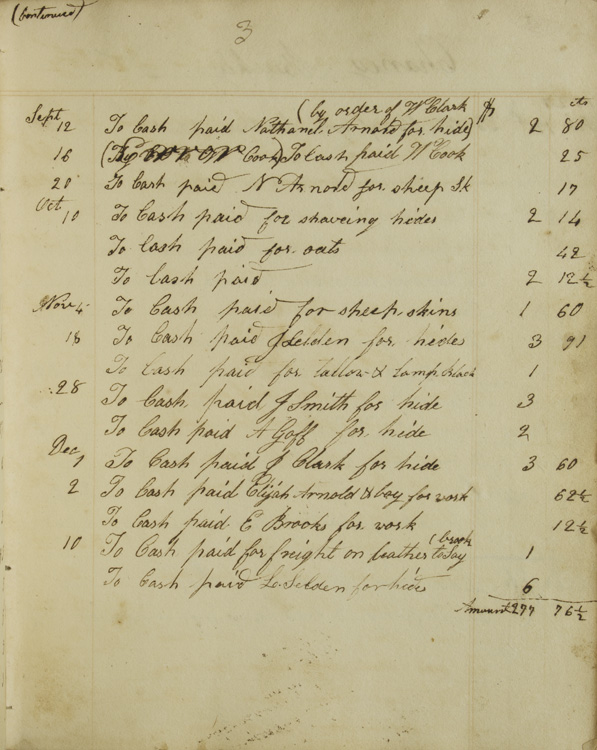 (Continued)
3
(by order of Wm Clark $ cts
Sept 12 To Cash paid Nathanel Arnord for hide) 2 80
16 Cook) To Cash paid Wm Cook 25
20 To Cash paid N Arnord for sheep Sk 17
Oct 10 To Cash paid for shaveing hides 2 14
To Cash paid for oats 42
To Cash paid 2 12½
Nov 4 To Cash paid for sheep skins 1 60
18 To Cash paid J Selden for hides 3 91
To Cash paid for Tallow & Lamp black 1
28 To Cash paid J Smith for hide 3
To Cash paid A Goff for hide 2
Dec 1 To Cash paid J Clark for hide 3 60
2 To Cash paid Elijah Arnold & boy for work 62½
To Cash paid E Brooks for work 12½
(brook
10 To Cash paid for freight on leather to Say 1
To Cash paid Selden for hide 6
Amount 277 76½